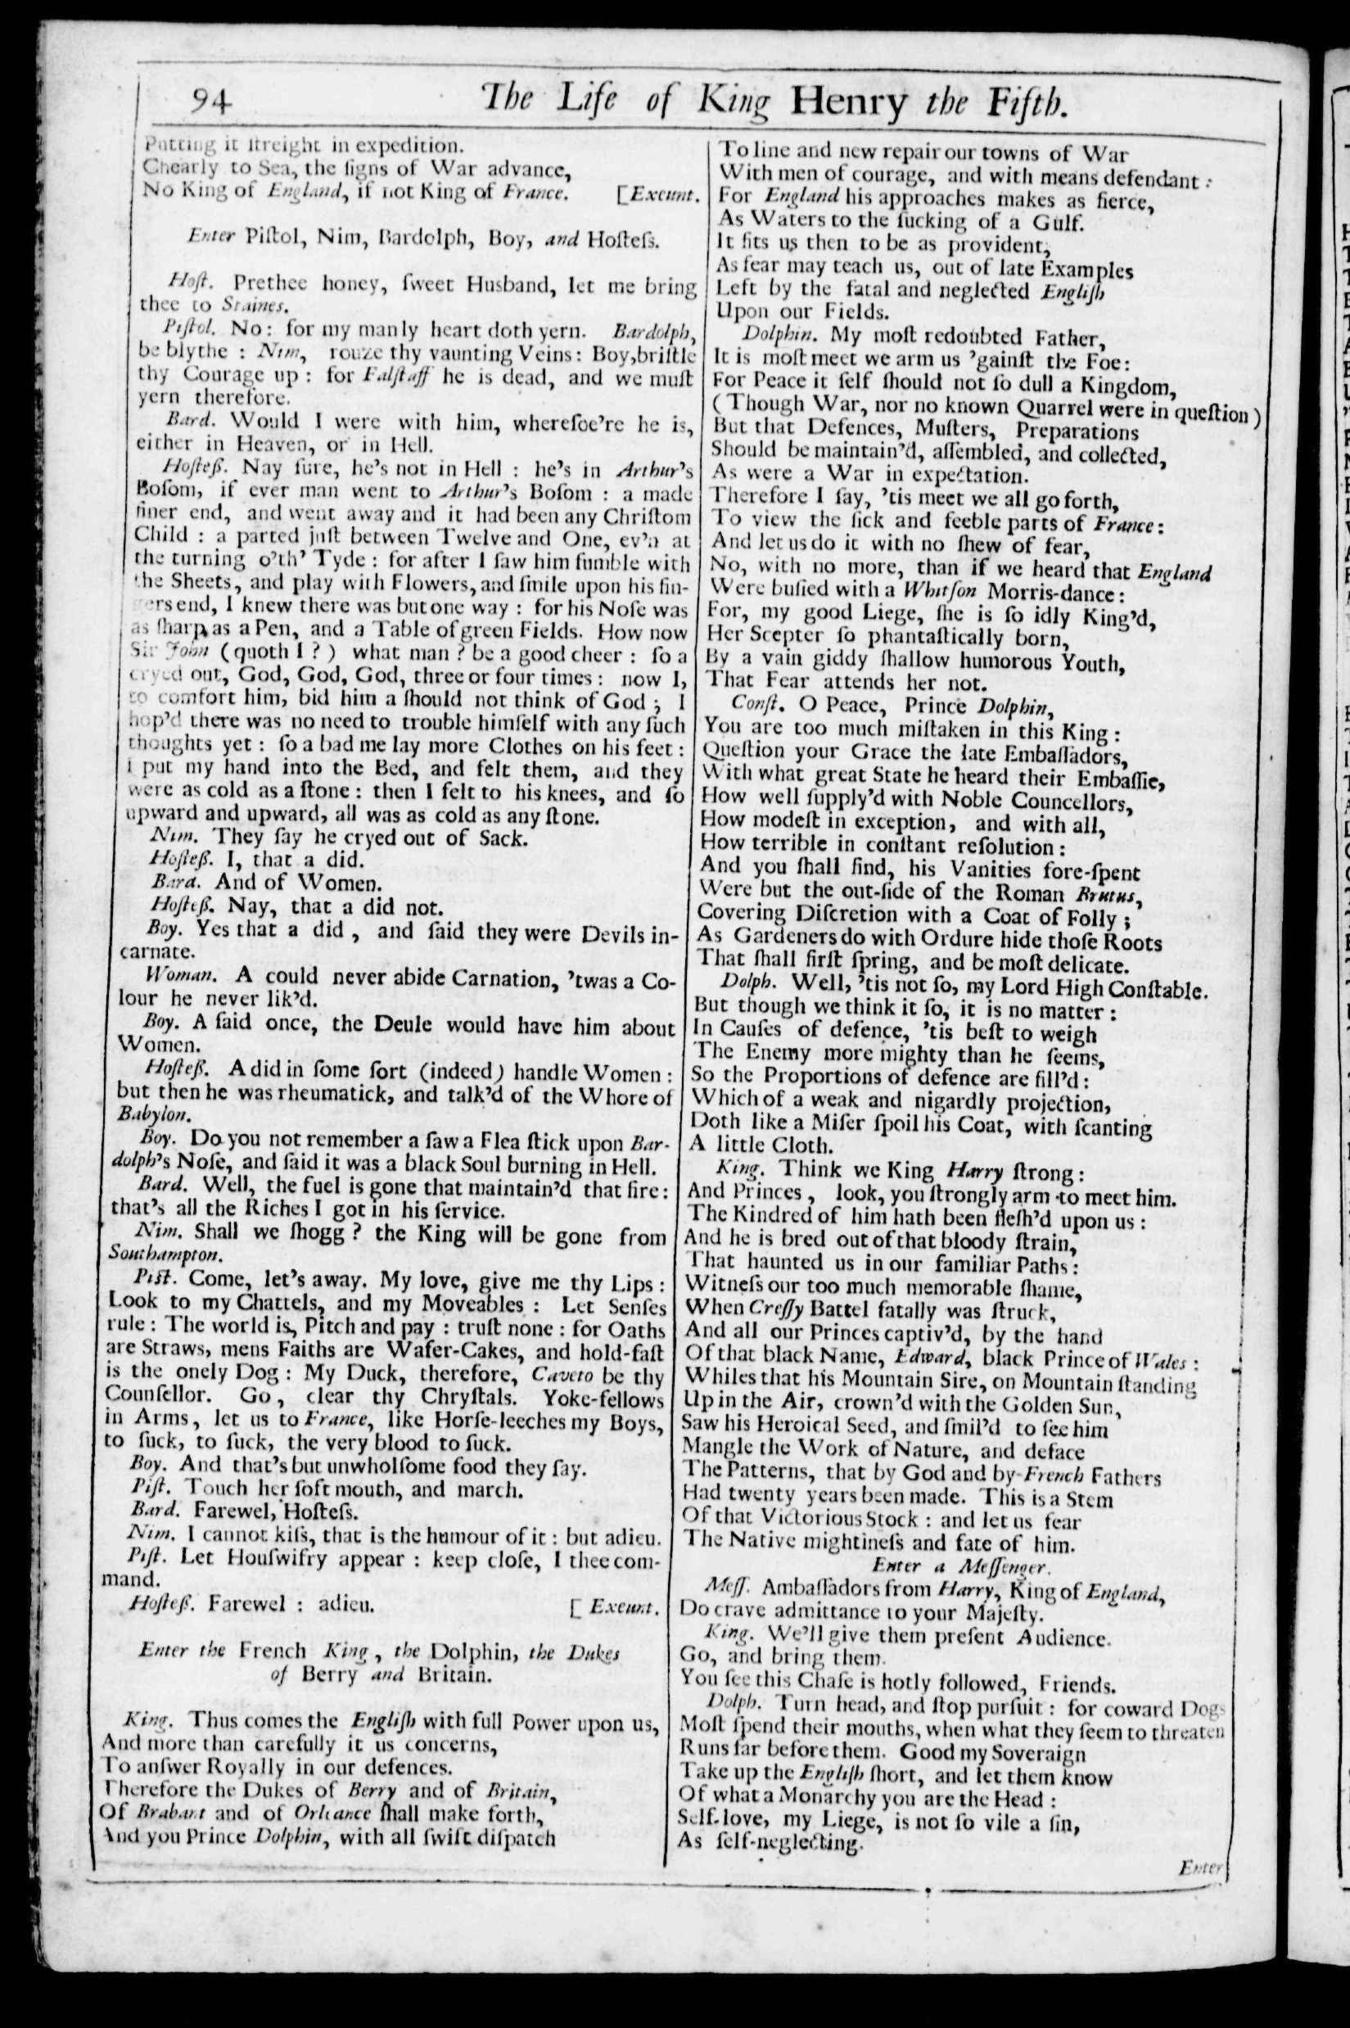 94
The Life of King Henry the Fifth.
Putting it ſtreight in expedition.
Chearly to Sea, the ſigns of War advance,
No King of England, if not King of France. [Exeunt.
Enter Piſtol, Nim, Bardolph, Boy, and Hoſteſs.
Hoſt. Prethee honey, ſweet Husband, let me bring
thee to Staines.
Piſtol. No: for my manly heart doth yern. Bardolph,
be blythe : Nim, rouze thy vaunting Veins: Boy, briſtle
thy Courage up : for Falſtaff he is dead, and we muſt
yern therefore.
Bard. Would I were with him, whereſoe're he is,
either in Heaven, or in Hell.
Hoſteß. Nay ſure, he's not in Hell : he's in Arthur's
Boſom, if ever man went to Arthur's Boſom : a made
finer end, and went away and it had been any Chriſtom
Child : a parted juſt between Twelve and One, ev'n at
the turning o'th' Tyde : for after I ſaw him fumble with
the Sheets, and play with Flowers, and ſmile upon his fin-
gers end, I knew there was but one way : for his Noſe was
as ſharp as a Pen, and a Table of green Fields. How now
Sir John (quoth I ?) what man ? be a good cheer : ſo a
cryed out, God, God, God, three or four times : now I,
to comfort him, bid him a ſhould not think of God ; I
hop'd there was no need to trouble himſelf with any ſuch
thoughts yet : ſo a bad me lay more Clothes on his feet :
I put my hand into the Bed, and felt them, and they
were as cold as a ſtone : then I felt to his knees, and ſo
upward and upward, all was as cold as any ſtone.
Nim. They ſay he cryed out of Sack.
Hoſteß. I, that a did.
Bard. And of Women.
Hoſteß. Nay, that a did not.
Boy. Yes that a did , and ſaid they were Devils in-
carnate.
Woman. A could never abide Carnation, 'twas a Co-
lour he never lik'd.
Boy. A ſaid once, the Deule would have him about
Women.
Hoſteß. A did in ſome ſort (indeed) handle Women :
but then he was rheumatick, and talk'd of the Whore of
Babylon.
Boy. Do you not remember a ſaw a Flea ſtick upon Bar-
dolph's Noſe, and ſaid it was a black Soul burning in Hell.
Bard. Well, the fuel is gone that maintain'd that fire:
that's all the Riches I got in his ſervice.
Nim. Shall we ſhogg ? the King will be gone from
Southampton.
Piſt. Come, let's away. My love, give me thy Lips :
Look to my Chattels, and my Moveables : Let Senſes
rule : The world is, Pitch and pay : truſt none : for Oaths
are Straws, mens Faiths are Wafer-Cakes, and hold-faſt
is the onely Dog : My Duck, therefore, Caveto be thy
Counſellor. Go, clear thy Chryſtals. Yoke-fellows
in Arms, let us to France, like Horſe-leeches my Boys,
to ſuck, to ſuck, the very blood to ſuck.
Boy. And that's but unwholſome food they ſay.
Piſt. Touch her ſoft mouth, and march.
Bard. Farewel, Hoſteſs.
Nim. I cannot kiſs, that is the humour of it : but adieu.
Piſt. Let Houſwifry appear : keep cloſe, I thee com-
mand.
Hoſteß. Farewel : adieu. [ Exeunt.
Enter the French King , the Dolphin, the Dukes
of Berry and Britain.
King. Thus comes the Engliſh with full Power upon us,
And more than carefully it us concerns,
To anſwer Royally in our defences.
Therefore the Dukes of Berry and of Britain,
Of Brabant and of Orleance ſhall make forth,
And you Prince Dolphin, with all ſwift diſpatch
To line and new repair our towns of War
With men of courage, and with means defendant :
For England his approaches makes as fierce,
As Waters to the ſucking of a Gulf.
It fits us then to be as provident,
As fear may teach us, out of late Examples
Left by the fatal and neglected Engliſh
Upon our Fields.
Dolphin. My moſt redoubted Father,
It is moſt meet we arm us 'gainſt the Foe:
For Peace it ſelf ſhould not ſo dull a Kingdom,
(Though War, nor no known Quarrel were in queſtion)
But that Defences, Muſters, Preparations
Should be maintain'd, aſſembled, and collected,
As were a War in expectation.
Therefore I ſay, 'tis meet we all go forth,
To view the ſick and feeble parts of France :
And let us do it with no ſhew of fear,
No, with no more, than if we heard that England
Were buſied with a Whitſon Morris-dance :
For, my good Liege, ſhe is ſo idly King'd,
Her Scepter ſo phantaſtically born,
By a vain giddy ſhallow humorous Youth,
That Fear attends her not.
Conſt. O Peace, Prince Dolphin,
You are too much miſtaken in this King :
Queſtion your Grace the late Embaſſadors,
With what great State he heard their Embaſſie,
How well ſupply'd with Noble Councellors,
How modeſt in exception, and with all,
How terrible in conſtant reſolution :
And you ſhall find, his Vanities fore-ſpent
Were but the out-ſide of the Roman Brutus,
Covering Diſcretion with a Coat of Folly ;
As Gardeners do with Ordure hide thoſe Roots
That ſhall firſt ſpring, and be moſt delicate.
Dolph. Well, 'tis not ſo, my Lord High Conſtable.
But though we think it ſo, it is no matter :
In Cauſes of defence, 'tis beſt to weigh
The Enemy more mighty than he ſeems,
So the Proportions of defence are fill'd :
Which of a weak and nigardly projection,
Doth like a Miſer ſpoil his Coat, with ſcanting
A little Cloth.
King. Think we King Harry ſtrong :
And Princes , look, you ſtrongly arm to meet him.
The Kindred of him hath been fleſh'd upon us :
And he is bred out of that bloody ſtrain,
That haunted us in our familiar Paths :
Witneſs our too much memorable ſhame,
When Creſſy Battel fatally was ſtruck,
And all our Princes captiv'd, by the hand
Of that black Name, Edward, black Prince of Wales :
Whiles that his Mountain Sire, on Mountain ſtanding
Up in the Air, crown'd with the Golden Sun,
Saw his Heroical Seed, and ſmil'd to ſee him
Mangle the Work of Nature, and deface
The Patterns, that by God and by French Fathers
Had twenty years been made. This is a Stem
Of that Victorious Stock : and let us fear
The Native mightineſs and fate of him.
Enter a Meſſenger.
Meſſ. Ambaſſadors from Harry, King of England,
Do crave admittance to your Majeſty.
King. We'll give them preſent Audience.
Go, and bring them.
You ſee this Chaſe is hotly followed, Friends.
Dolph. Turn head, and ſtop purſuit : for coward Dogs
Moſt ſpend their mouths, when what they ſeem to threaten
Runs far before them. Good my Soveraign
Take up the Engliſh ſhort, and let them know
Of what a Monarchy you are the Head :
Self-love, my Liege, is not ſo vile a ſin,
As ſelf-neglecting.
Enter